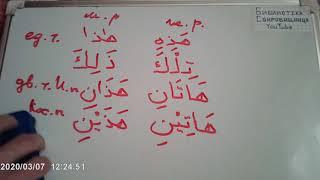 Библиотека
Сокровищница
YouTube
м.р ж.р.
ед.ч. هٰذَا هٰذِهِ
ذَلِكَ تِلْكَ
дв.ч. И.п هَذَانِ هَاتَانِ
кос.п هَذَيْنِ هَاتَيْنِ
2020/03/07 12:24:51